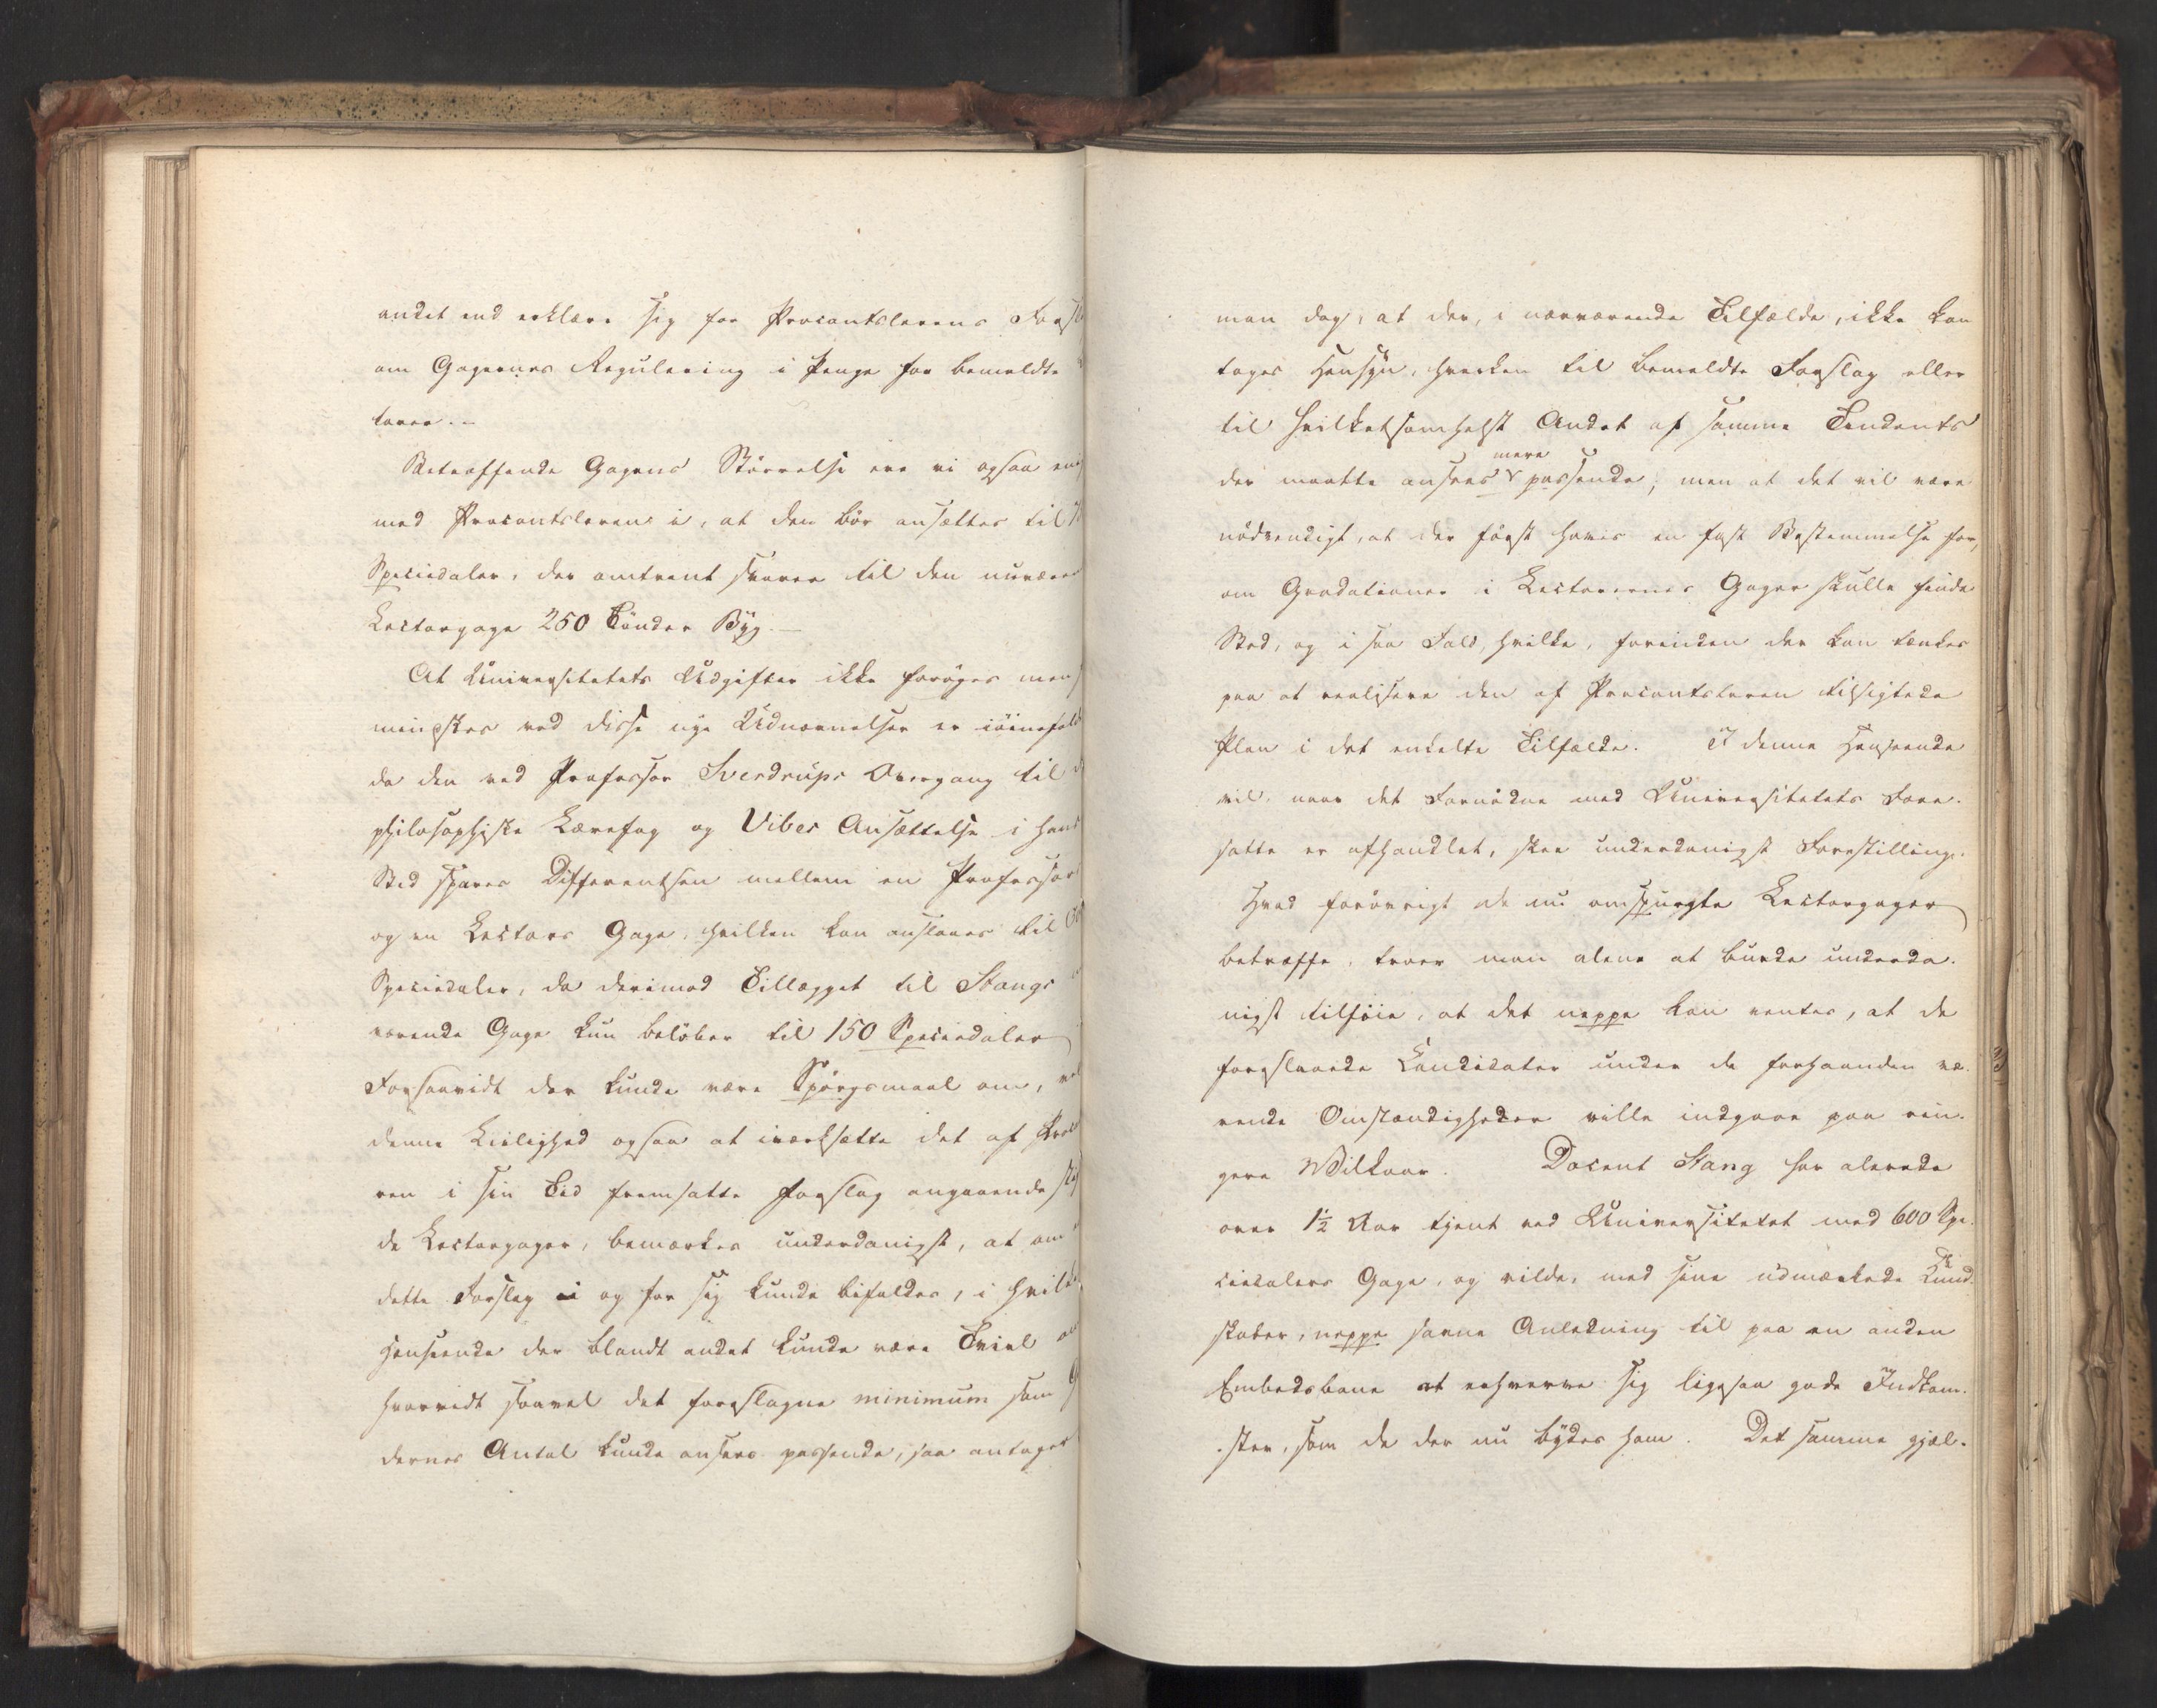 andet end erklære sig for Procantslerens Forsl
om Gagernes Regulering i Penge for bemeldte
torer.-
Betreffende Gagens Størrelse ere vi ogsaa enig
med Procantsleren i, at den bør ansættes til
Speciedaler, der omtrent svarer til den nuvære
Lectorgage 250 Tönder Byg.-
At Universitetets Udgifter ikke forøges men
mindskes ved disse nye Udnævnelser er iöinefald
da den ved Professor Sverdrups Overgang til
philosophiske Lærefag og Vibes Ansættelse i hans
Sted spares Differentsen mellem en Professors
og en Lectors Gage, hvilken kan anslaaes til
Speciedaler, da derimod Tillægget til Stangs
værende Gage kun beløber til 150 Speciedaler
Forsaavidt der kunde være Spörgsmaal om, ved
denne Leilighed ogsaa at iværksætte det af
ren i sin Tid fremsatte Forslag angaaende
de Lectorgager, bemærkes underdanigst, at om
dette Forslag i og for sig kunde bifaldes, i hvilke
Henseende der blandt andet kunde være Tvivl om
hvorvidt saavel det foreslagne minimum som
dernes Antal kunde ansees passende, saa antager
man dog, at der, i nærværende Tilfælde, ikke kan
tages Hensyn, hverken til bemeldte Forslag eller
til hvilketsomhelst Andet af samme Tendents
mere
der maatte ansees passende, men at det vil være
nödvendigt, at der först haves en fast Bestemmelse for,
om Gradationer i Lectorernes Gager skulle finde
Sted, og i saa Fald, hvilke, forinden der kan tænkes
paa at realisere den af Procantsleren tilsigtede
Plan i det enkelte Tilfælde. I denne Henseende
vil, naar det Fornödne med Universitetets Fore-
satte er afhandlet, skee underdanigst Forestilling.
Hvad forövrigt de nu omspurgte Lectorgager
betræffe, troer man alene at burde underda-
nigst tilföie, at det neppe kan ventes, at de
foreslaaede Candidater under de forhaanden væ-
rende Omstændigheder ville indgaae paa rin-
gere Vilkaar. Docent Stang har alerede
over 1½ Aar tjent ved Universitetet med 600 Spe-
ciedalers Gage, og vilde, med sine udmærkede Kund-
skaber, neppe savne Anledning til paa en anden
Embedsbane at erhverve sig ligesaa gode Indkom-
ster, som de der nu bydes ham. Det samme gjæl-